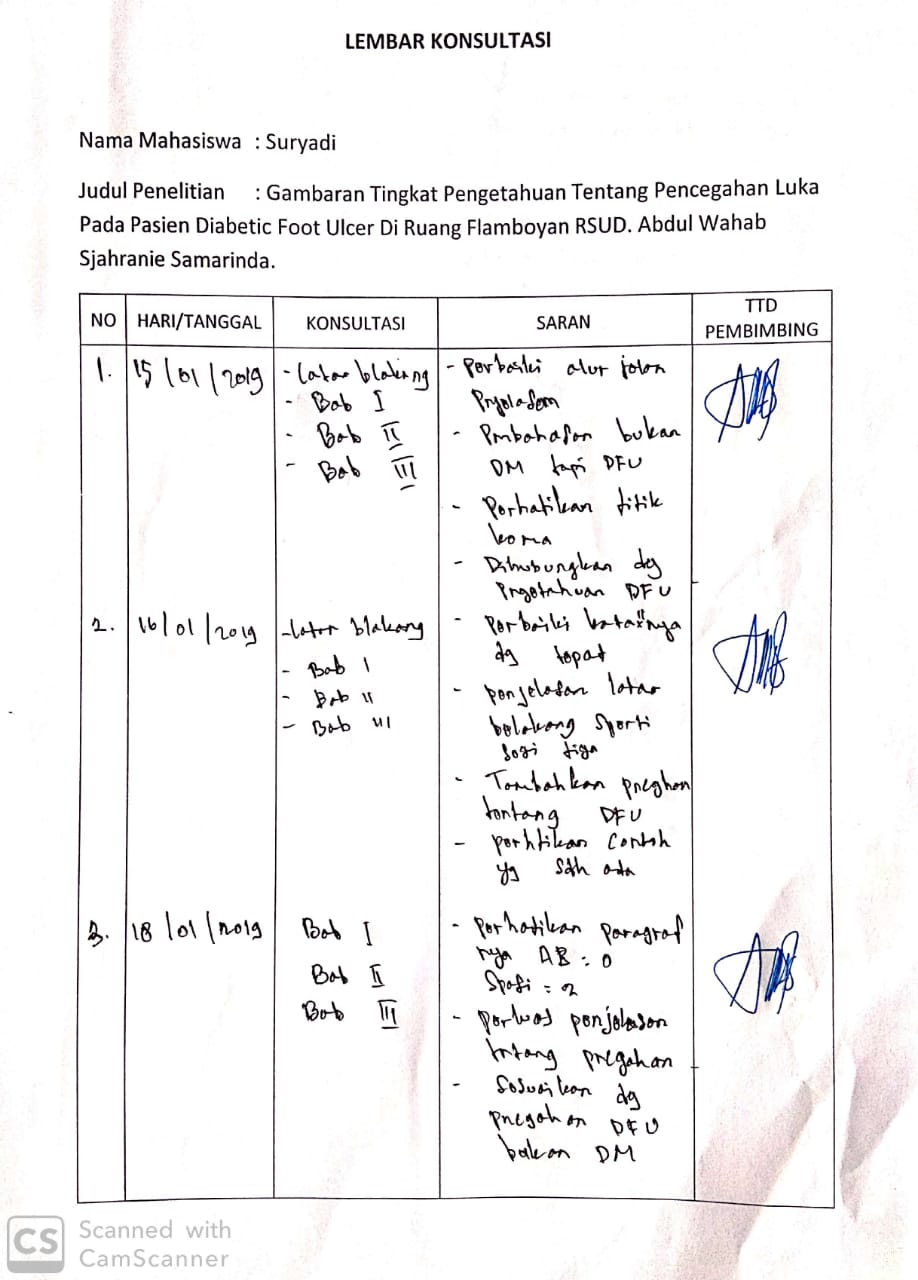 LEMBAR KONSULTASI
Nama Mahasiswa : Suryadi
Judul Penelitian : Gambaran Tingkat Pengetahuan Tentang Pencegahan Luka
Pada Pasien Diabetic Foot Ulcer Di Ruang Flamboyan RSUD. Abdul Wahab
Sjahranie Samarinda.
NO HARI/TANGGAL KONSULTASI SARAN TTD PEMBIMBING
1. 15/01/2019
- Latar blakang
- Bab I
- Bab II
- Bab III
- Perbaiki alur jalan
- Pmbahasan bukan
DM tapi DFU
- Perhatikan titik
koma
- Dihubungkan dg
Pngetahuan DFU
2. 16/01/2019
- latar blakang
- Bab I
- Bab II
- Bab III
- Perbaiki
dg tepat
- penjelasan latar
belakang sperti
segi tiga
- Tambahkan pncghan
tentang DFU
- perhtikan contoh
yg sdh ada
3. 18/01/2019
Bab I
Bab II
Bab III
- Perhatikan paragraf
nya AB : 0
Spasi : 2
- perluas penjelasan
tntang pncgahan
- Sesuaikan dg
pncgahan DFU
bukan DM
CS Scanned with
CamScanner